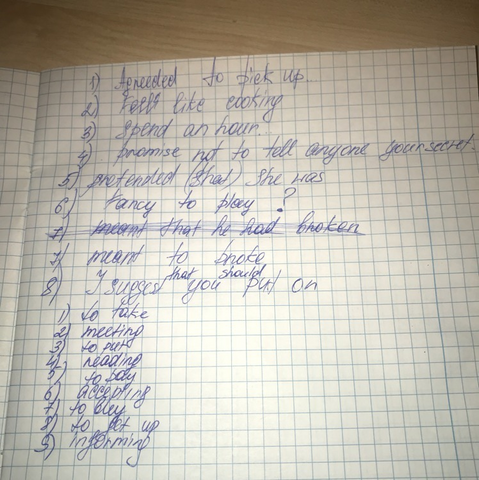 1) Agreeded to pick up.
2) Felt like cooking
3) Spend an hour.
4) promise not to tell anyone your secret.
5) pretended (that) she was
6) Fancy to play ?
7) meant that he had broken
7) meant to broke
8) I suggest that you should put on
1) to take
2) meeting
3) to put
4) reading
5) to
6) accepting
7) to buy
8) to put up
9) informing